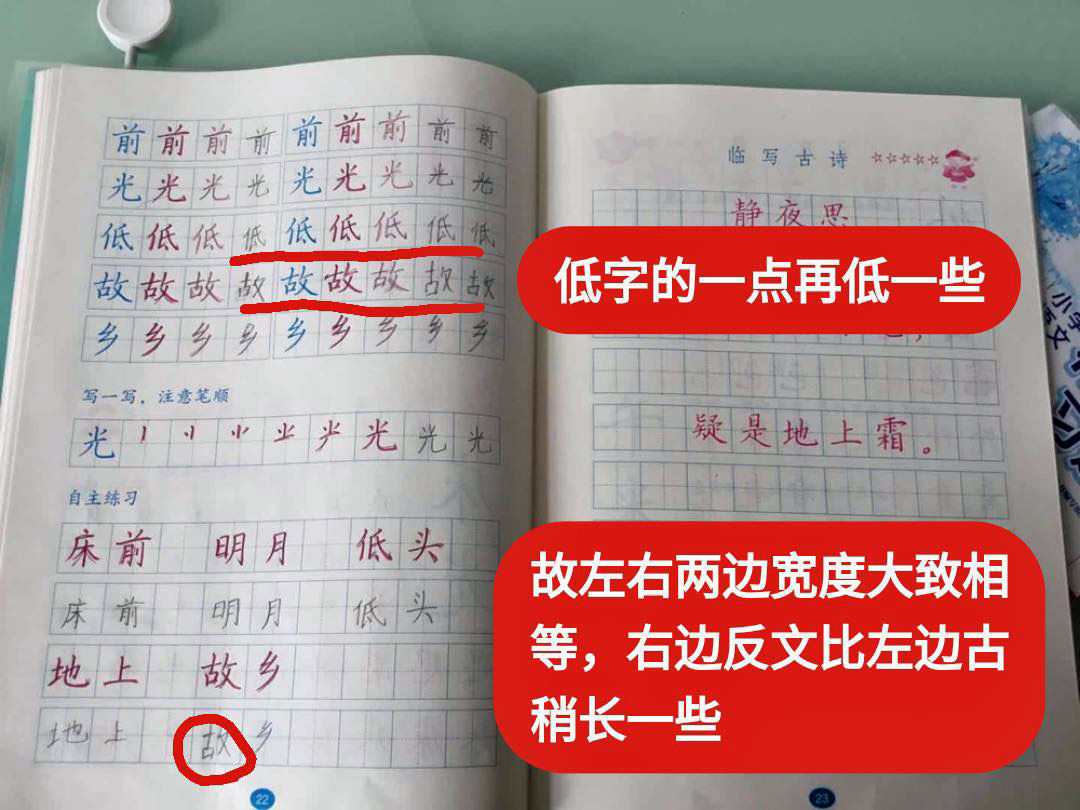 前前前前前前前前前
光光光光光光光光光
低低低低低低低低低
故故故故故故故故故
乡乡乡乡乡乡乡乡乡
写一写，注意笔顺
光 光光光
自主练习
床前 明月 低头
床前 明月 低头
地上 故乡
地上 故乡
22
临写古诗 ☆☆☆☆☆
静夜思
低字的一点再低一些
疑是地上霜。
故左右两边宽度大致相
等，右边反文比左边古
稍长一些
23
小学
语文